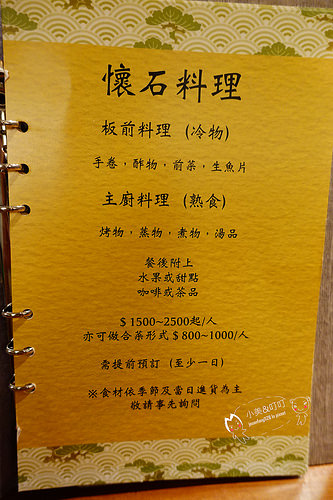 懷石料理
板前料理 (冷物)
手卷，酢物，前菜，生魚片
主廚料理 (熟食)
烤物，蒸物，煮物，湯品
餐後附上
水果或甜點
咖啡或茶品
$1500~2500起/人
亦可做合菜形式$800~1000/人
需提前預訂 (至少一日)
※食材依季節及當日進貨為主
敬請事先詢問
小美&叮叮